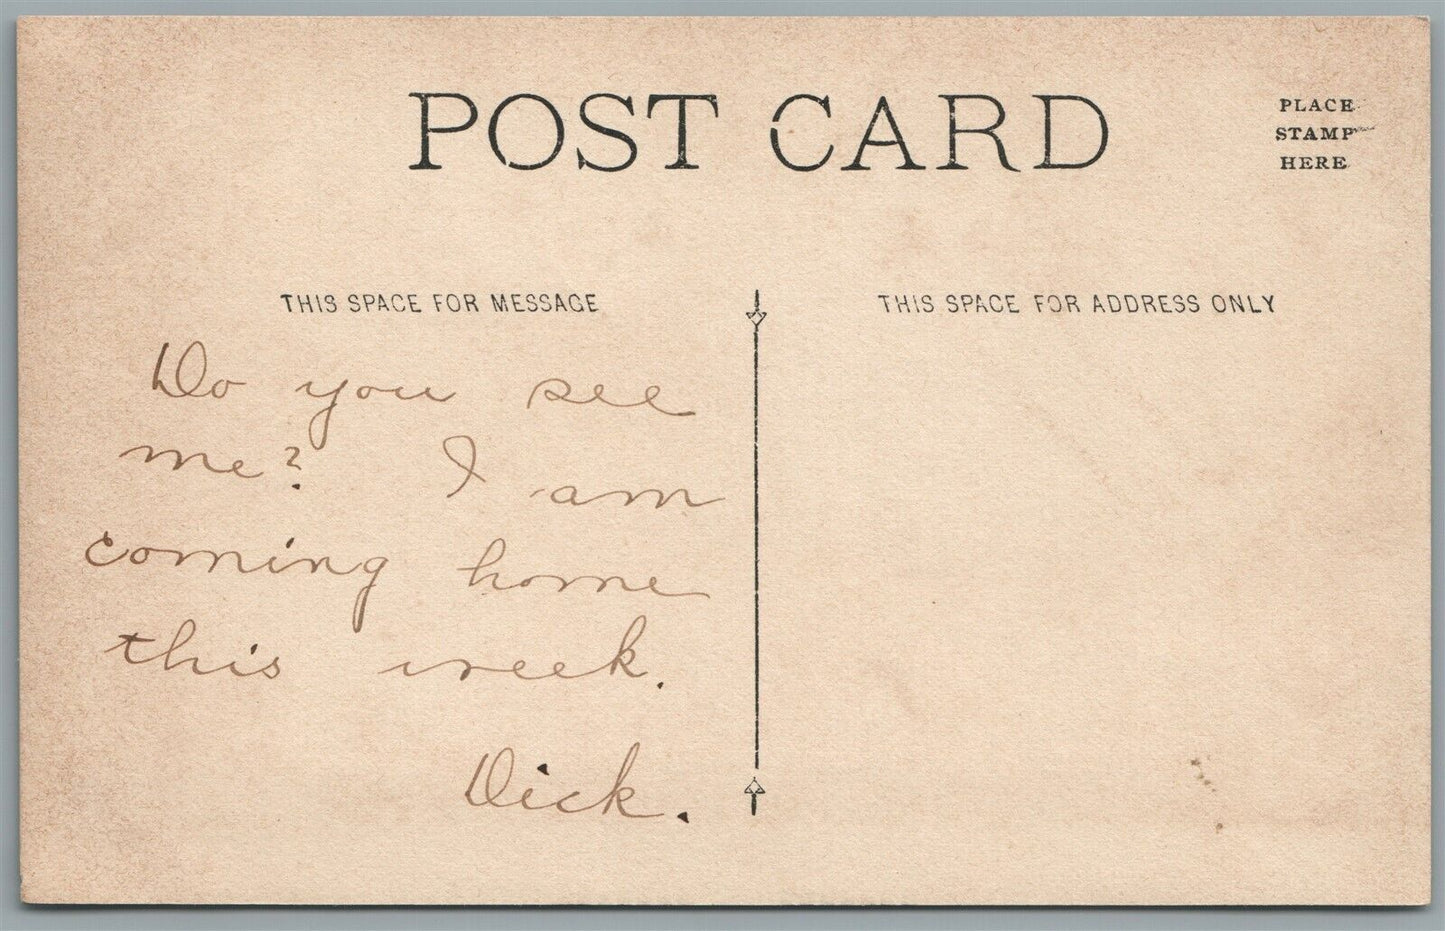 POST CARD
PLACE
STAMP
HERE
THIS SPACE FOR MESSAGE
THIS SPACE FOR ADDRESS ONLY
Do you see
me? I am
coming home
this week.
Dick.